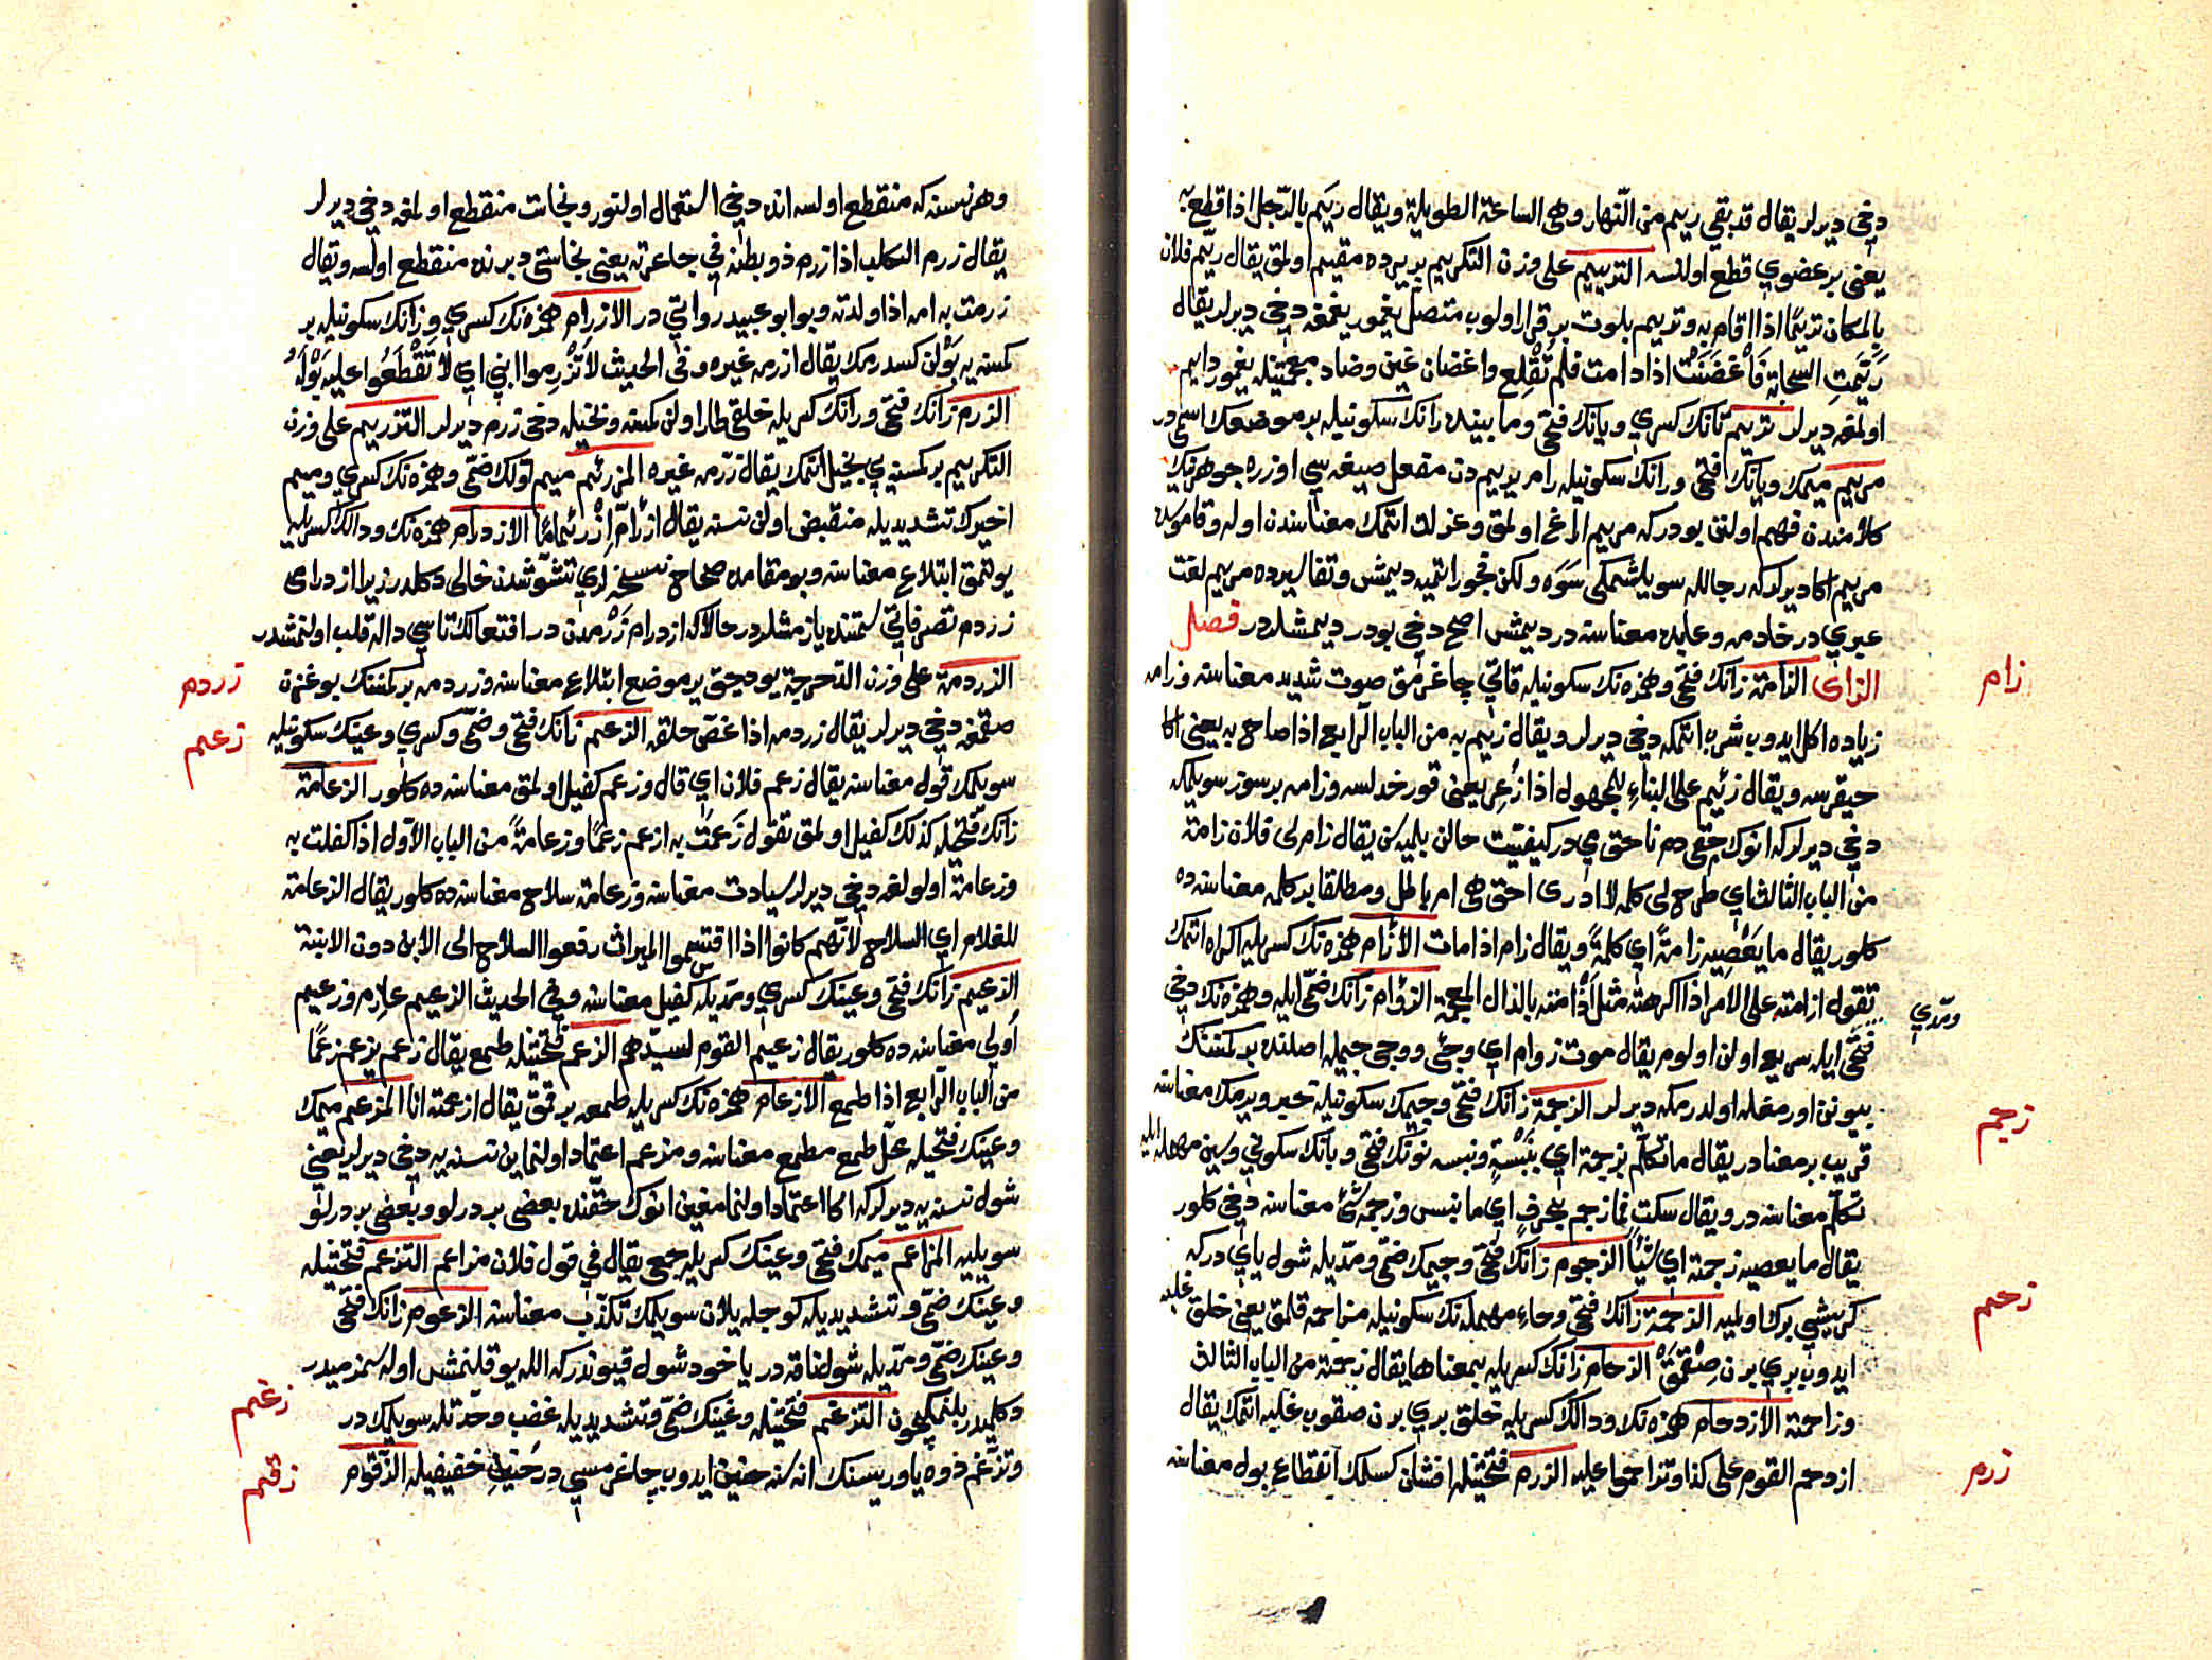 دخى ديرلر يقال قد بقي ريم من النّهار وهى الساعة الطويلة ويقال ريَم بالرّجل اذا قطع به
يعنى بر عضوي قطع اولنسه الترييم على وزن التكريم بر يرده مقيم اولمق يقال ريّم فلان
بالمكان ترييمًا اذا اقام به وترييم بلوت برقرار اولوب متصل يغمور يغمغه دخى ديرلر يقال
رَيَّمَتِ السحابة فَاَغْضَنَتْ اذا دامت فلم تُقْلِع واغضان غين وضاد معجمتيله يغمور دايم
اولمغه ديرلر تريم تانك كسري ويانك فتحى ومابينده رانك سكونيله بر موضعك اسمى در
مريم ميمك ويانك فتحى ورانك سكونيله رام يريم دن مفعل صيغه سي اوزره جوهرينك
كلامندن فهم اولنن بودركه مريم ايراغ اولمق وعزلت ايتمك معناسندن اوله وقاموسده
مريم اكا ديرلركه رجالله سويلشمكى سَوَه ولكن فجور ايتميه ديمش وتفاسيرده مريم لغت
عبري در خادمه وعابده معناسنه در ديمش اصح دخى بودر ديمشلردر فصل
الزاى الزأمة زانك فتحى وهمزه نك سكونيله قاتي چاغرمق صوت شديد معناسنه وزأمه
زام
زياده اكل ايدوب شرب ايتمكه دخى ديرلر ويقال زئيم به من الباب الرابع اذا صاح به يعنى اكا
حيقرسه ويقال زئيم على البناءِ للمجهول اذا ذُعِر يعنى قورخدلسه وزأمه بر سوز سويلمكه
دخى ديرلركه انوك حقى دم ناحق مي در كيفيت حالن بلميه سن يقال زام لى فلان زأمة
من الباب الثالث اي طرح لى كلمة لا ادرى احق هى ام باطل ومطلقا بر كلمه معناسنه ده
كلور يقال ما يَعْصِيه زأمةً اي كلمةً ويقال زام اذا مات الأزآم همزه نك كسريله اكراه ايتمك
تقول ازامته على الامر اذا اكرهته مثل اَذْأمته بالذال المعجمة الزؤام زانك ضمّى ايله وهمزه نك دخى
ومدّي
فتحى ايله سريع اولن اولوم يقال موت زوام اي وحىّ ووحى جيمله اصلنده بر كمسنك
بيونن اورمغله اولدرمكه ديرلر الزجمة زانك فتحى وجيمك سكونيله خبر ويرمك معناسنه
زجم
قريب بر معنادر يقال ما تكلّم بزجمة اي بنَبْسةٍ ونبسه نونك فتحى وبانك سكوني وسين مهمله ايله
تكلّم معناسنه در ويقال سكت فما زجم بحرفٍ اي ما نبس وزجمه شئ معناسنه دخى كلور
يقال ما يعصيه زجمة اي شيئًا الزجوم زانك فتحى وجيمك ضمّى ومدّيله شول ياي دركه
كريشي برك اولميه الزحمة زانك فتحى وحاءِ مهمله نك سكونيله مزاحمه قلمق يعنى خلق غلبه
زحم
ايدوب بري برن صِقْمَقْ الزحام زانك كسريله بمعناها يقال زحمته من الباب الثالث
وزاحمته الازدحام همزه نك ودالك كسريله خلق بري برن صقوب غلبه ايتمك يقال
ازدحم القوم على كذا وتزاحموا عليه الزرم فتحتيله افشان كسلمك انقطاع بول معناسنه
زرم
وهر نسنه كه منقطع اولسه انده دخى استعمال اولنور ونجاست منقطع اولمغه دخى ديرلر
يقال زرم الكلب اذا زرم ذو بطنه في جاعرته يعنى نجاستى دبرنده منقطع اولسه ويقال
زرمت به امه اذا ولدته وبو ابو عبيد روايتي در الازرام همزه نك كسري وزانك سكونيله بر
كمسنه يه بَوْلن كسدرمك يقال ازرمه غيره وفى الحديث لا تُزْرِموا ابني اي لا تَقْطَعُوا عليه بَوْلَهُ
الزرم زانك فتحى ورانك كسريله خلقى طار اولن كمسنه ونخيله دخى زرم ديرلر التزريم على وزن
التكريم بر كمسنه يي بخيل ايتمك يقال زرّمه غيره المزرئم ميم اولك ضمّى وهمزه نك كسري وميم
اخيرك تشديديله منقبض اولن نسنه يقال ازرأمّ ازرئمامًا الازدرام همزه نك ودالك كسريله
يوتمق ابتلاع معناسنه وبو مقامده صحاح نسخه لري تشوّشدن خالى دكلدر زيرا ازدراى
زردم تصرفاتي سمتنده يازمشلردر حالاكه ازدرام زَرْمدن در افتعالك تاسي داله قلب اولنمشدر
الزردمة على وزن الدّحرجة يوديجق ير موضع ابتلاع معناسنه وزردمه بر كمسنك بوغزن
زردم
صقمغه دخى ديرلر يقال زردمه اذا غصّ حلقه الزعم زانك فتحى وضمّى وكسري وعينك سكونيله
زعم
سويلمك قول معناسنه يقال زعم فلان اي قال وزعم كفيل اولمق معناسنه ده كلور الزعامة
زانك فتحيله كذلك كفيل اولمق تقول زَعمتُ به ازعم زعمًا وزعامةً من الباب الاول اذا كفلت به
وزعامة اولولغه دخى ديرلر سيادت معناسنه وزعامة سلاح معناسنه ده كلور يقال الزعامة
للغلام اي السلاح لانّهم كانوا اذا اقتسموا الميراث رفعوا السلاح الى الابن دون الابنة
الزعيم زانك فتحى وعينك كسري ومدّيله كفيل معناسنه وفى الحديث الزعيم غارم وزعيم
اُولي معناسنه ده كلور يقال زعيم القوم لسيّدهم الزعم فتحتيله طمع يقال زعم يزعم زعمًا
من الباب الرابع اذا طمع الازعام همزه نك كسريله طمعه براقمق يقال ازعمته انا المزعم ميمك
وعينك فتحيله محلّ طمع مطمع معناسنه ومزعم اعتماد اولنماين نسنه يه دخى ديرلر يعنى
شول نسنه يه ديرلركه اكا اعتماد اولنمامغين انوك حقنده بعضى بر درلو وبعضى بر درلو
سويليه المزاعم ميمك فتحى وعينك كسريله جمعى يقال في قول فلان مزاعم التزعم فتحتيله
وعينك ضمّى وتشديديله كوجله يلان سويلمك تكذّب معناسنه الزعوم زانك فتحى
وعينك ضمّى ومدّيله شول ناقه در ياخود شول قيوندركه الله يوقلنمش اوله سمزميدر
دكلميدر بلنمكيچون التزغم فتحتيله وغينك ضمّى وتشديديله غضب وحدّتله سويلمك در
زغم
وتزغّم دوه ياوريسنك اناسنه حنين ايدوب چاغرمسي در حنين خفيفيله الزّقّوم
زقم